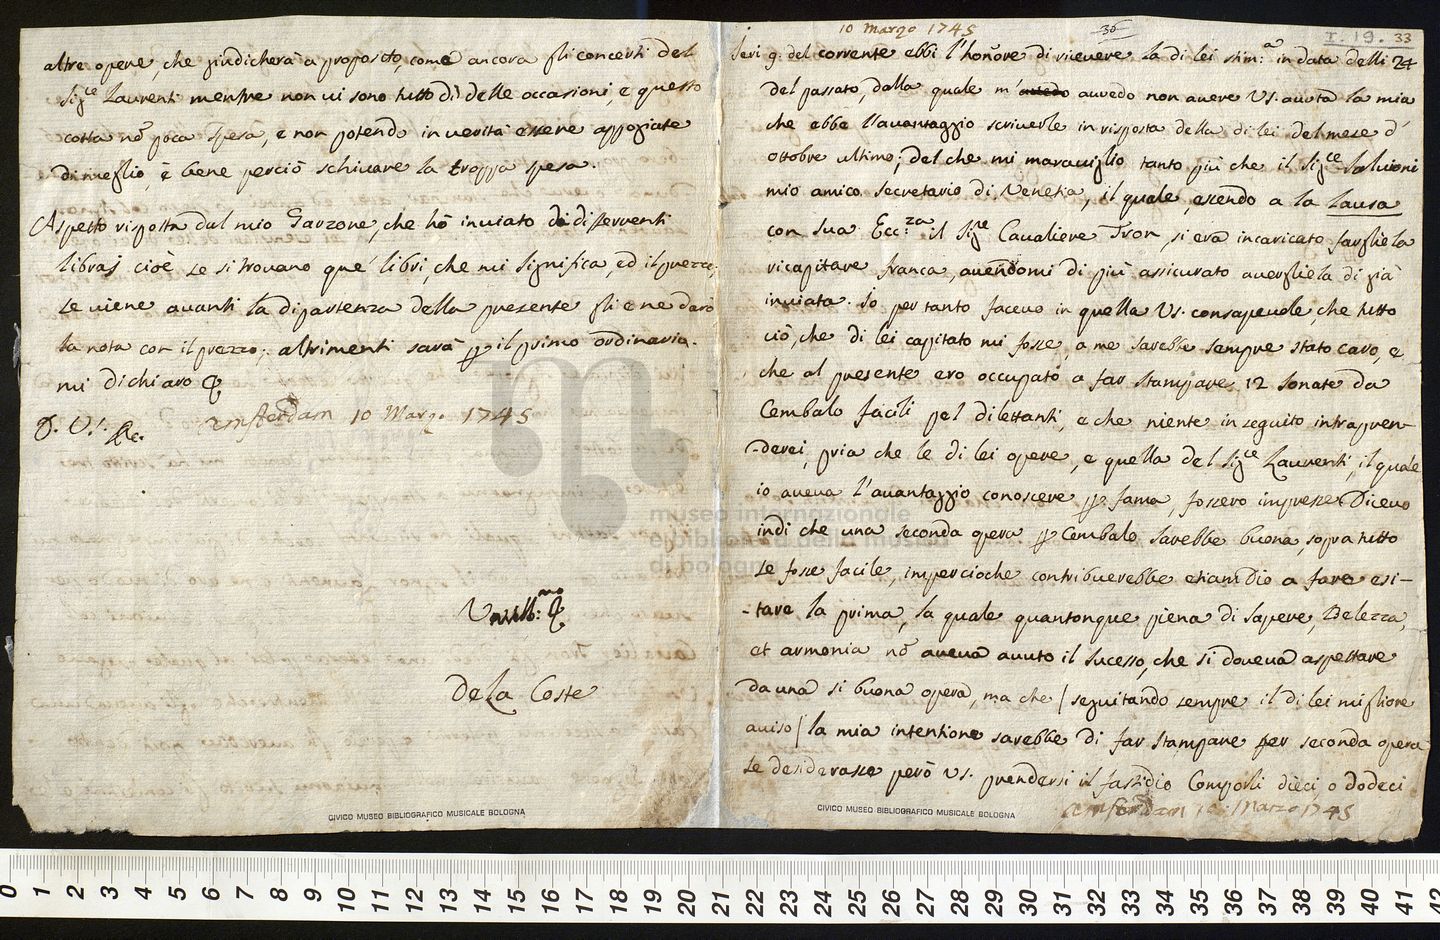 10 Marzo 1745
36
I. 19. 33
Ieri 9. del corrente ebbi l'honore di ricevere la di lei stim:a in data delli 24
del passato, dalla quale m' avvedo non avere VS. avuta la mia
che ebbe l'avantaggio scriverle in risposta della di lei del mese d'
ottobre ultimo; del che mi maraviglio tanto più che il Sig:re Salvioni
mio amico secretario di Venetia, il quale, essendo a la Lausa
con sua Ecc:za il Sig:re Cavaliere Tron, si era incaricato fargliela
ricapitare franca, avendomi di più assicurato avergliela di già
inviata. Io per tanto facevo in quella VS. consapevole, che tutto
ciò, che di lei capitato mi fosse, a me sarebbe sempre stato caro, e
che al presente ero occupato a far stampare 12 Sonate da
Cembalo facili pel dilettanti, e che niente in seguito intrapren-
-derei, pria che le di lei opere, e quella del Sig:re Laurenti, il quale
io aveva l'avantaggio conoscere per fama, fossero impresse. Dicevo
indi che una seconda opera per Cembalo sarebbe buona, sopra tutto
se fosse facile, imperciocche contribuerebbe etiam Dio a fare esi-
-tare la prima, la quale quantonque piena di sapere, Belezza,
et armonia nō aveva avuto il sucesso, che si doveva aspettare
da una si buona opera, ma che / seguitando sempre il di lei migliore
aviso / la mia intentione sarebbe di far stampare per seconda opera
se desiderasse però VS. prendersi il fastidio Comporli dieci o dodeci
Amsterdam 10 Marzo 1745
altre opere, che giudicherà a proposito, come ancora gli concerti del
Sig:re Laurenti mentre non vi sono tutto dì delle occasioni, e questo
costa nō poca spesa, e non potendo in verità essere appogiate
di meglio, è bene perciò schivare la troppa spesa.
Aspetto risposta dal mio Garzone, che hò inviato da differenti
libraj cioè se si trovano que' libri, che mi significa, ed il prezzo;
se viene avanti la dipartenza della presente gli e ne darò
la nota con il prezzo; altrimenti sarà per il primo ordinaria.
mi dichiaro &
D. VS. &c.
Amsterdam 10 Marzo 1745
&
De La Coste
museo internazionale
e biblioteca della musica
di bologna
CIVICO MUSEO BIBLIOGRAFICO MUSICALE BOLOGNA
CIVICO MUSEO BIBLIOGRAFICO MUSICALE BOLOGNA
0 1 2 3 4 5 6 7 8 9 10 11 12 13 14 15 16 17 18 19 20 21 22 23 24 25 26 27 28 29 30 31 32 33 34 35 36 37 38 39 40 41 42